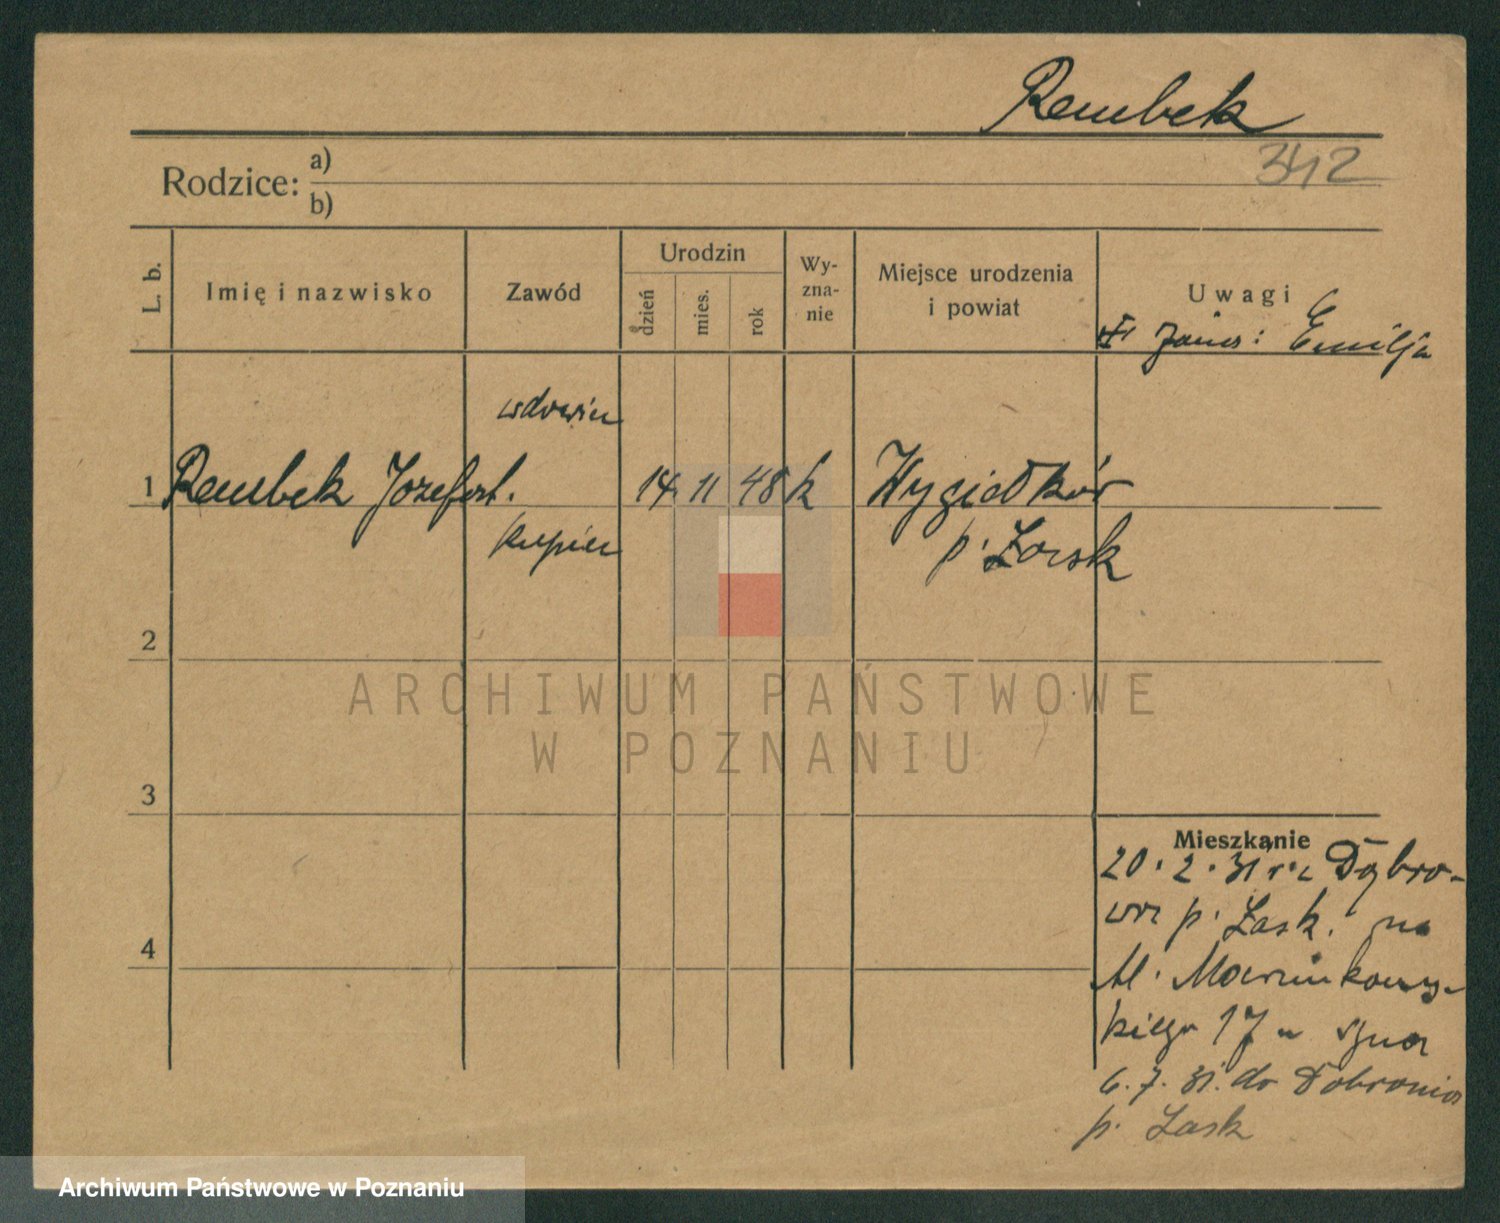 Rembek
342
Rodzice: a)
b)
L. b.
Imię i nazwisko
Zawód
Urodzin
dzień
mies.
rok
Wy-
zna-
nie
Miejsce urodzenia
i powiat
Uwagi
Emilja
wdowiec
1 Rembek Józef 14. 11 48 k
kupiec
p. Łask
2
ARCHIWUM PAŃSTWOWE
W POZNANIU
3
Mieszkanie
20. 2. 31 r. z Dąbro-
wa p. Łask. na
Al. Marcinkows-
kiego 17 u syna
6. 7. 31. do Dobronia
p. Łask
4
Archiwum Państwowe w Poznaniu